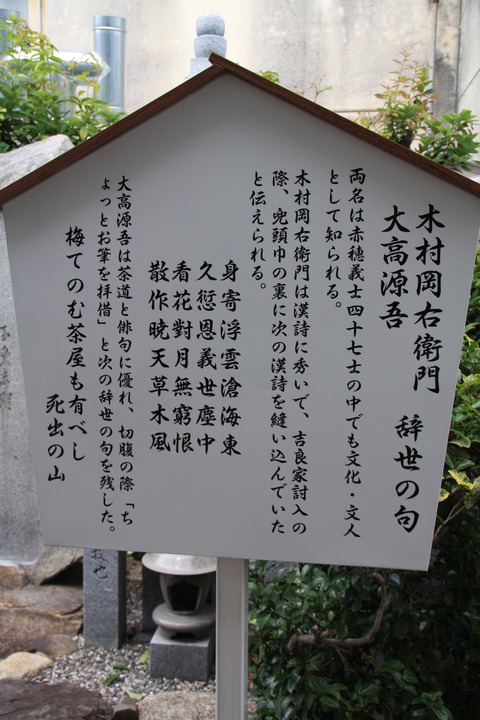 木村岡右衛門　辞世の句
大高源吾
両名は赤穂義士四十七士の中でも文化・文人
として知られる。
木村岡右衛門は漢詩に秀いで、吉良家討入の
際、兜頭巾の裏に次の漢詩を縫い込んでいた
と伝えられる。
身寄浮雲滄海東
久愆恩義世塵中
看花對月無窮恨
散作暁天草木風
大高源吾は茶道と俳句に優れ、切腹の際「ち
ょっとお筆を拝借」と次の辞世の句を残した。
梅てのむ茶屋も有べし
死出の山